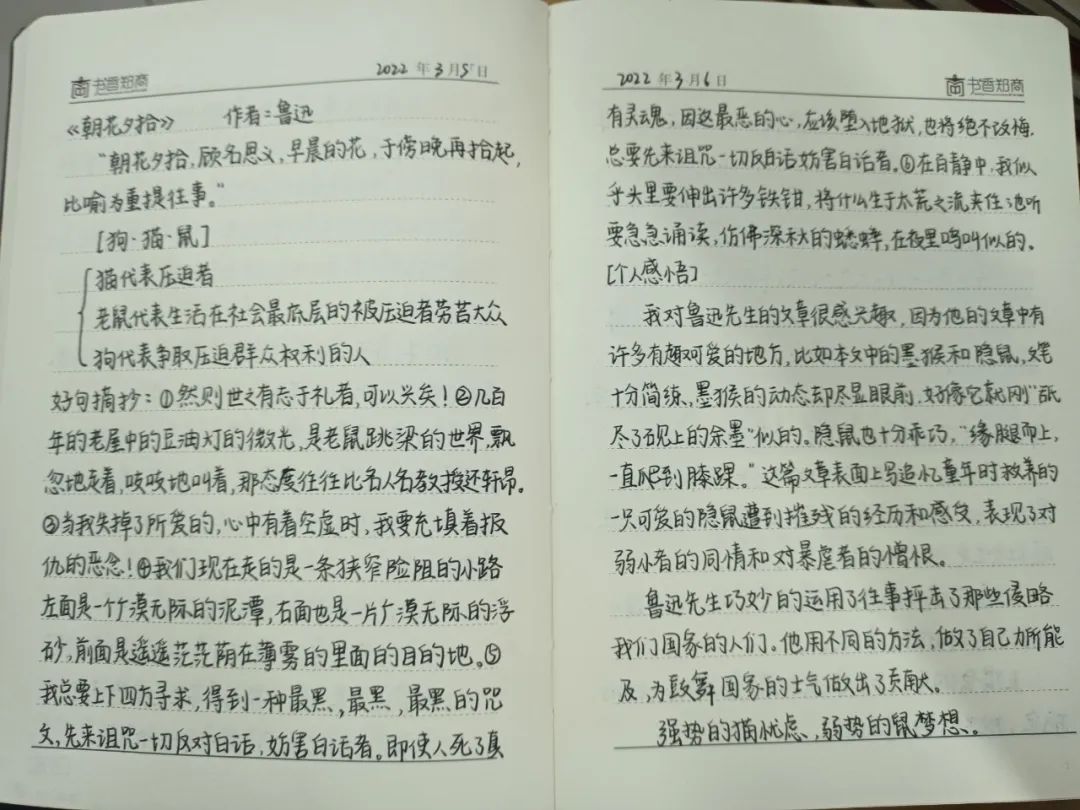 书香郑商
2022年3月5日
《朝花夕拾》 作者:鲁迅
"朝花夕拾,顾名思义,早晨的花,于傍晚再拾起,
比喻为重提往事。"
[狗·猫·鼠]
猫代表压迫者
老鼠代表生活在社会最底层的被压迫者劳苦大众
狗代表争取压迫群众权利的人
好句摘抄:①然则世之有志于礼者,可以兴矣!②几百
年的老屋中的豆油灯的微光,是老鼠跳梁的世界,飘
忽地走着,吱吱地叫着,那态度往往比名人名教授还轩昂。
③当我失掉了所爱的,心中有着空虚时,我要充填着报
仇的恶念!④我们现在走的是一条狭窄险阻的小路
左面是一个广漠无际的泥潭,右面也是一片广漠无际的浮
砂,前面是遥遥茫茫荫在薄雾的里面的目的地。⑤
我总要上下四方寻求,得到一种最黑,最黑,最黑的咒
文,先来诅咒一切反对白话,妨害白话者。即使人死了真
2022年3月6日
书香郑商
有灵魂,因这最恶的心,应该堕入地狱,也将绝不改悔.
总要先来诅咒一切反白话妨害白话者。⑥在百静中,我似
乎头里要伸出许多铁钳,将什么生于太荒之流夹住;也听
要急急诵读,仿佛深秋的蟋蟀,在夜里鸣叫似的。
[个人感悟]
我对鲁迅先生的文章很感兴趣,因为他的文章中有
许多有趣可爱的地方,比如本文中的墨猴和隐鼠,文笔
十分简练,墨猴的动态却尽显眼前,好像它就刚"舐
尽了砚上的余墨"似的。隐鼠也十分乖巧,"缘腿而上,
一直爬到膝踝。"这篇文章表面上写追忆童年时救养的
一只可爱的隐鼠遭到摧残的经历和感受,表现了对
弱小者的同情和对暴虐者的憎恨。
鲁迅先生巧妙的运用了往事抨击了那些侵略
我们国家的人们。他用不同的方法,做了自己力所能
及,为鼓舞国家的士气做出了贡献。
强势的猫忧虑,弱势的鼠梦想。